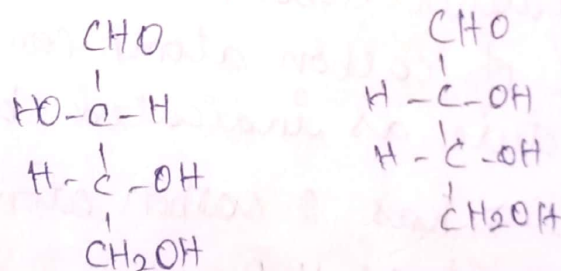 CHO
HO-C-H
H-C-OH
CH2OH
CHO
H-C-OH
H-C-OH
CH2OH